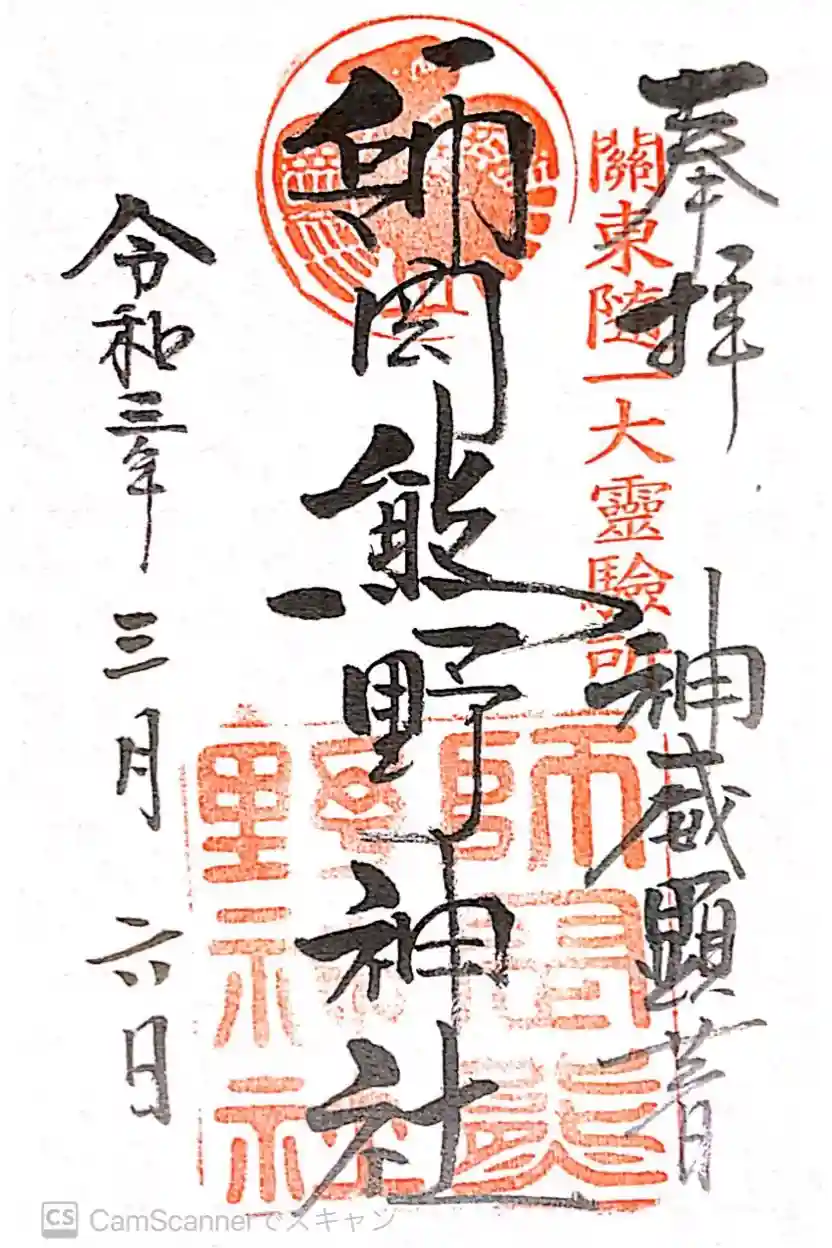 奉拝
神威顕著
關東随一大靈驗所
師岡熊野神社
令和三年三月六日
CS CamScannerでスキャン